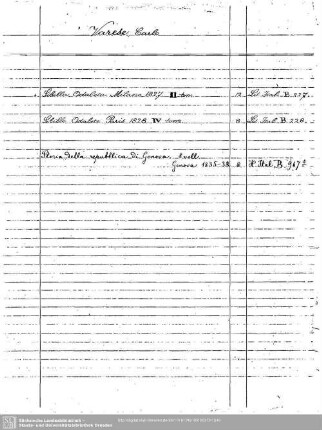 Varese, Carlo
Sibilla Odaleta Milano 1827 II tom. 12 Lit. Ital. B. 227.
Sibilla Odaleta Paris 1828 IV tom. 8 Lit. Ital. B. 228.
Storia della repubblica di Genova. 8 voll.
Genova 1835-38 8. H. Ital. B. 947
Sächsische Landesbibliothek -
Staats- und Universitätsbibliothek Dresden